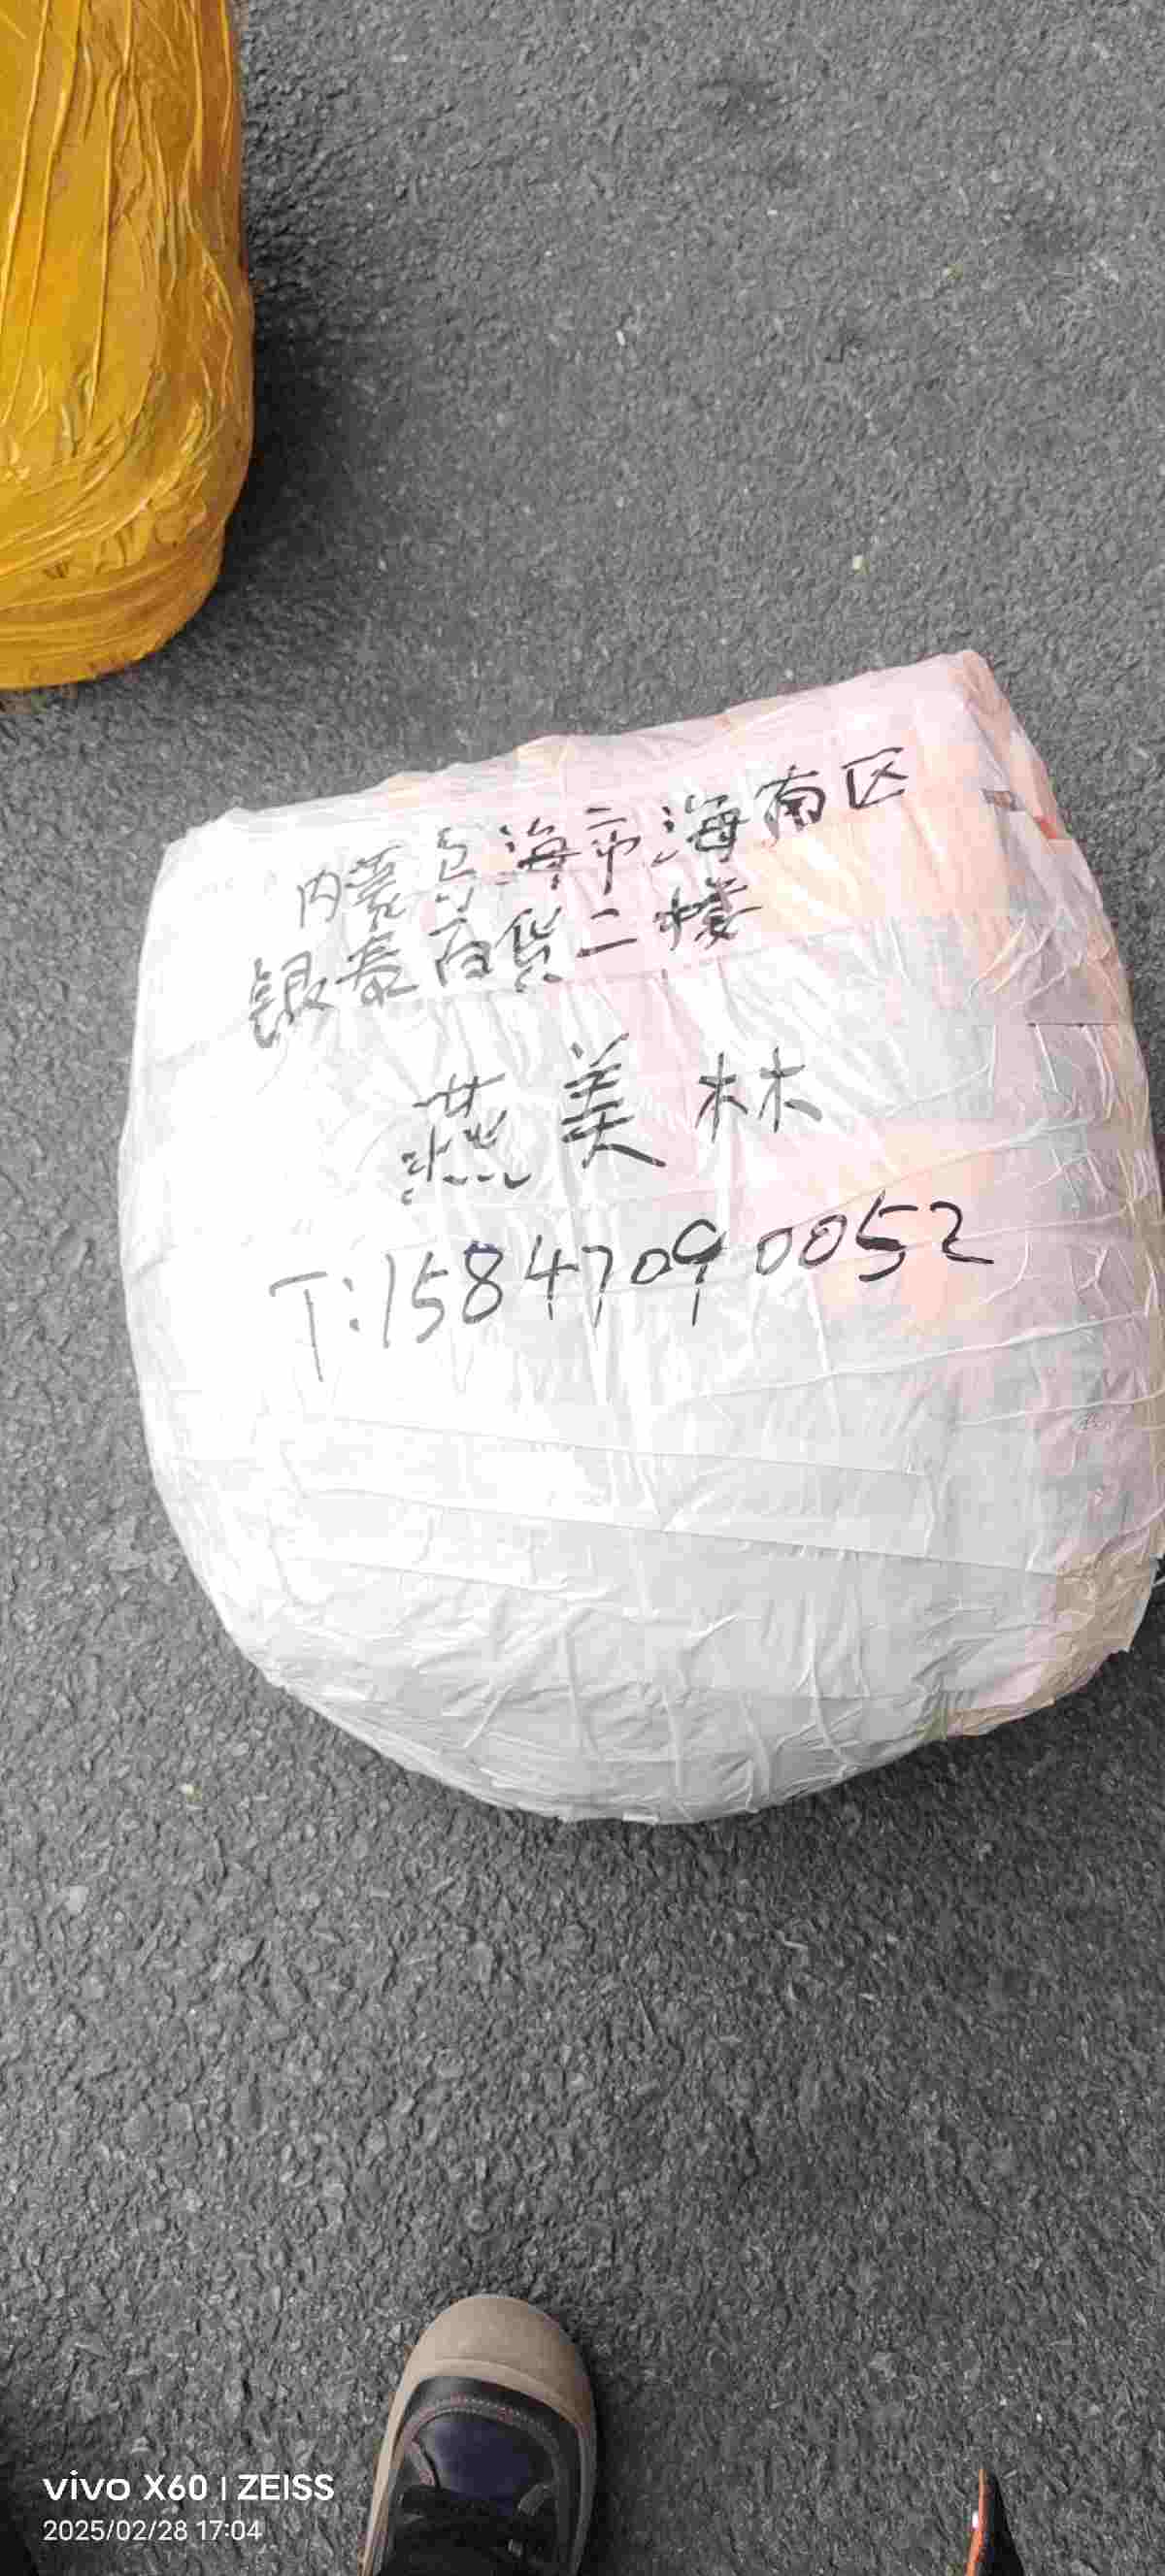 内蒙乌海市海南区
银泰百货二楼
燕美林
T:15847090052
vivo X60 | ZEISS
2025/02/28 17:04